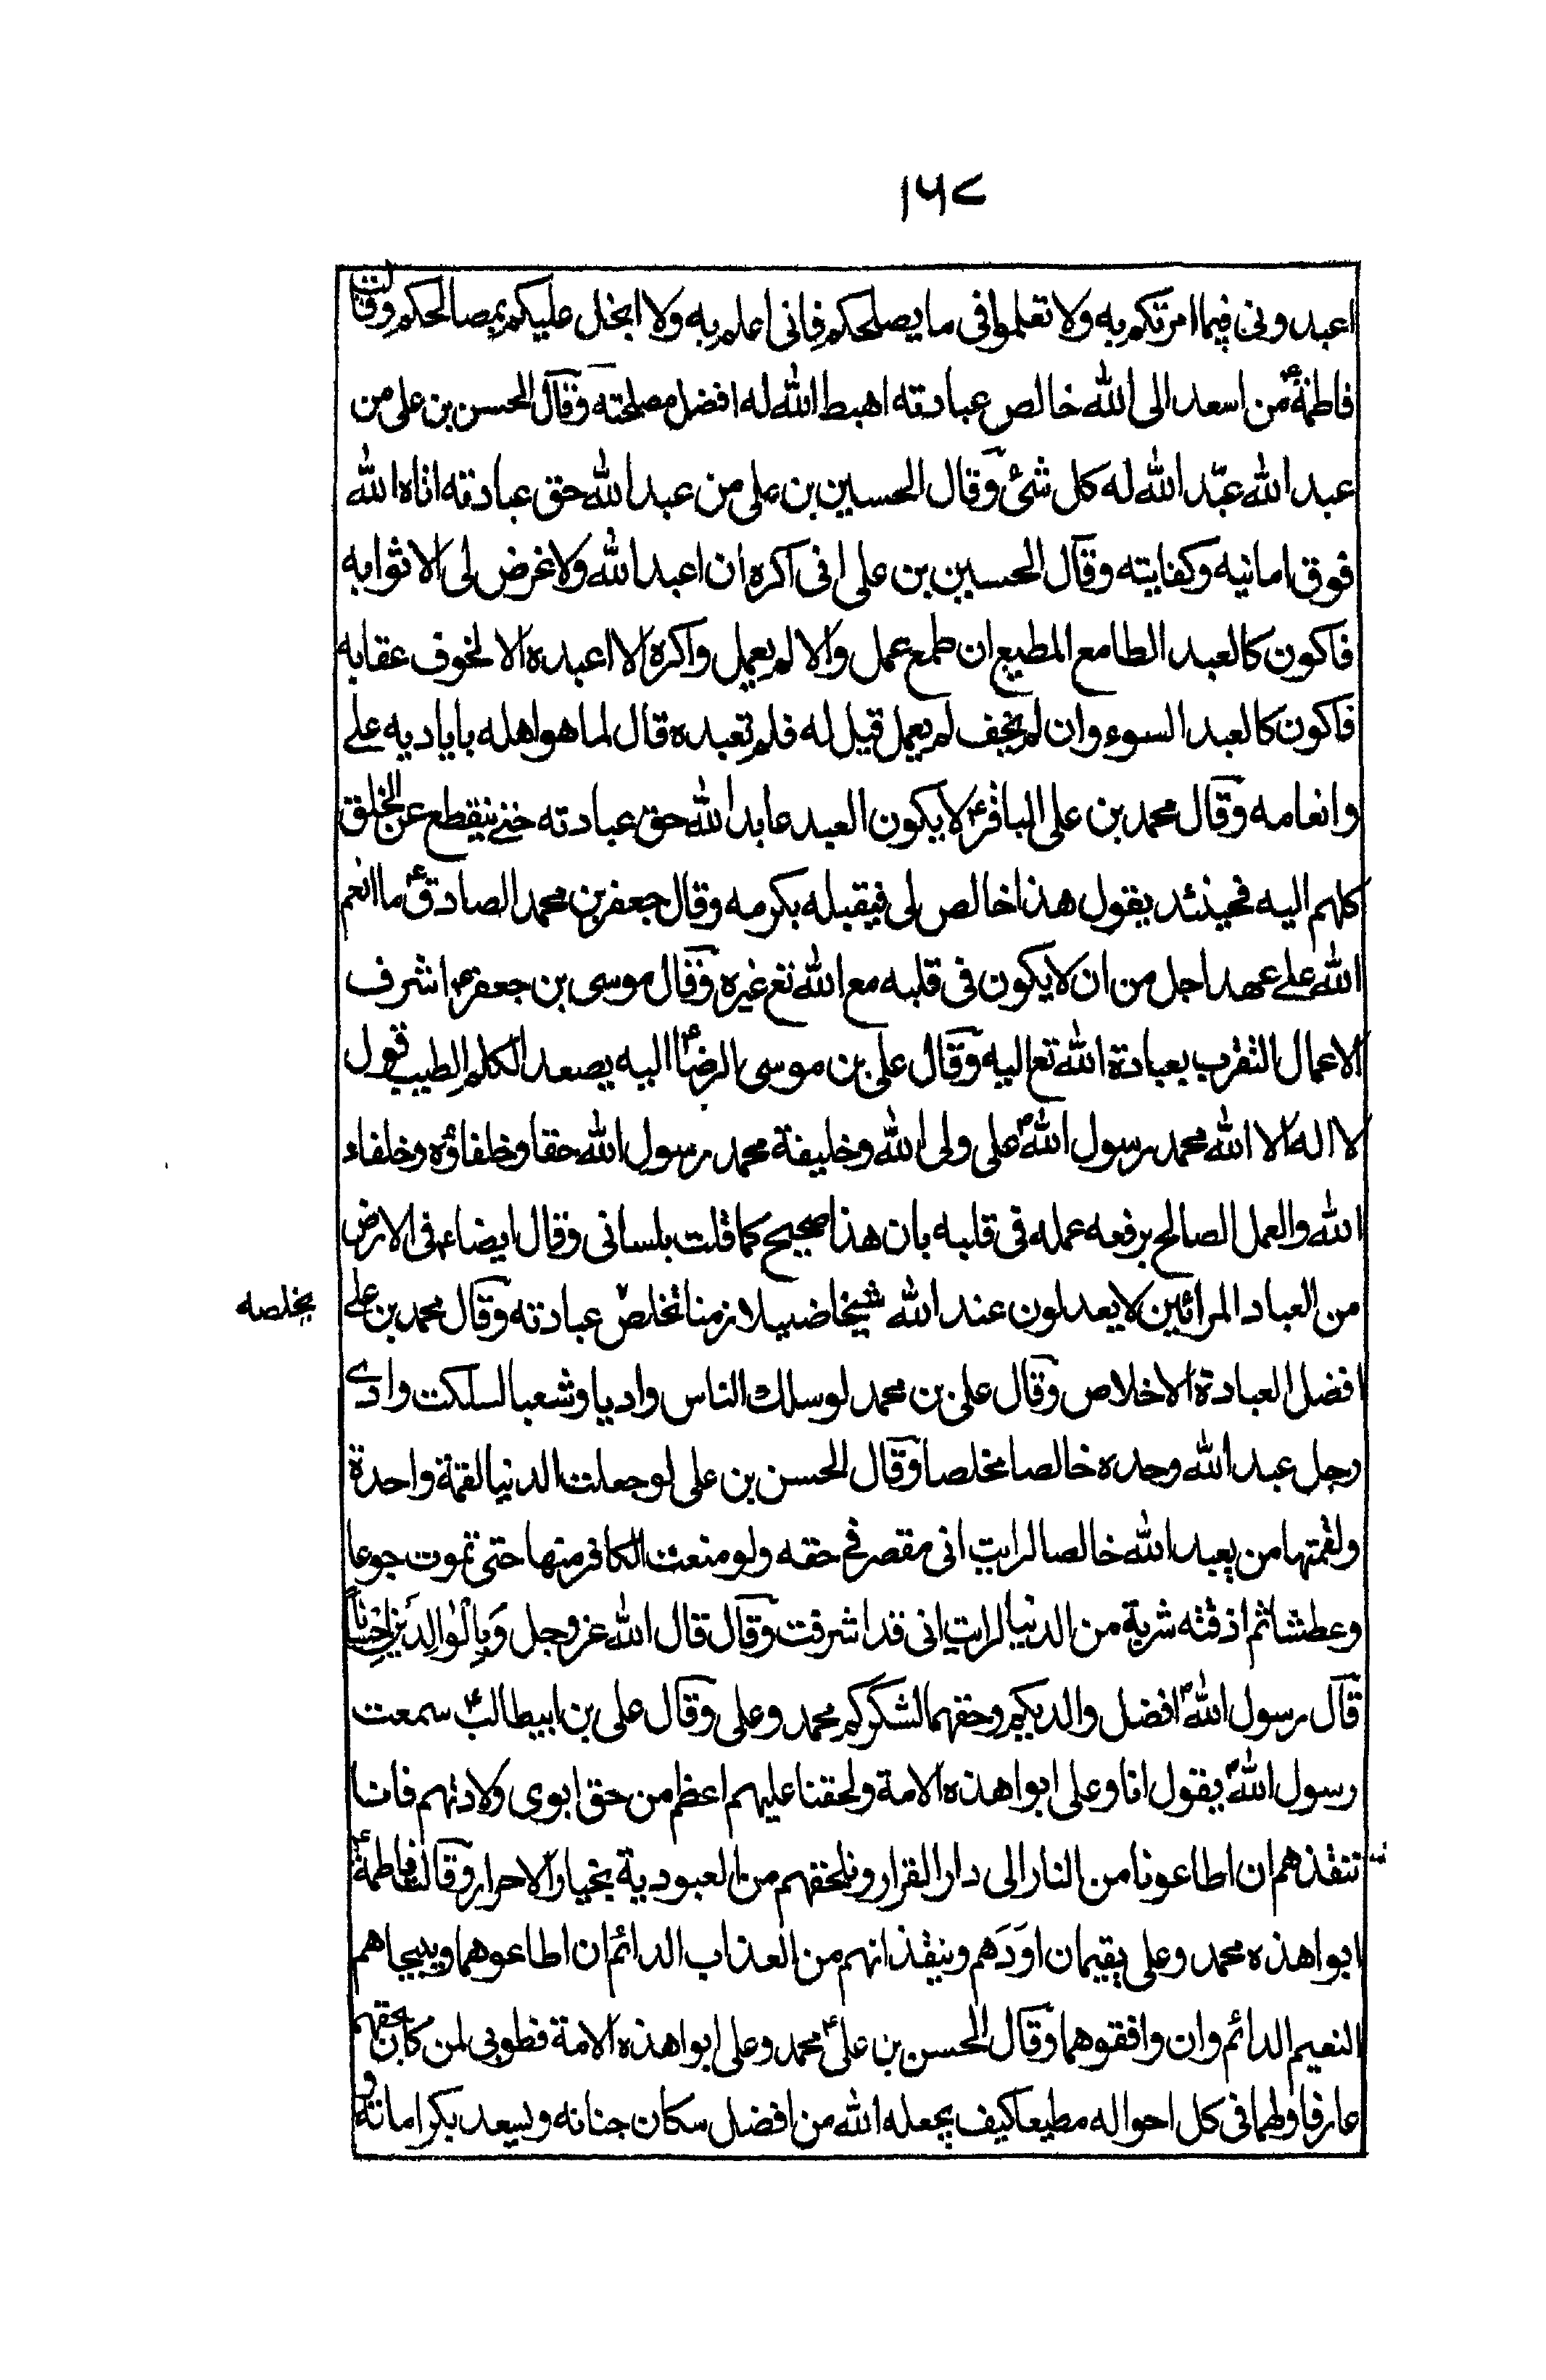 ١٦٧
اعبدونى فيما امرتكم به ولا تعلموا فى ما يصلحكم فانى اعلم به ولا ابخل عليكم بمصالحكم وقالت
فاطمة ع من اسعد الى الله خالص عبادته اهبط الله له افضل مصلحته وقال الحسن بن على من
عبد الله عبّد الله له كل شئ وقال الحسين بن على من عبد الله حق عبادته اتاه الله
فوق امانيه وكفايته وقال الحسين بن على انى اكره ان اعبد الله ولا غرض لى الا ثوابه
فاكون كالعبد الطامع المطيع ان طمع عمل والا لم يعمل واكره الا اعبده الا لخوف عقابه
فاكون كالعبد السوء وان لم يخف لم يعمل قيل له فلم تعبده قال لما هو اهله باياديه على
وانعامه وقال محمد بن على الباقر ع لا يكون العبد عابد الله حق عبادته حتى ينقطع عن الخلق
كلهم اليه فحينئد يقول هذا خالص لى فيقبله بكرمه وقال جعفر بن محمد الصادق ع ما انعم
الله على عهد اجل من ان لا يكون فى قلبه مع الله تع غيره وقال موسى بن جعفر ع اشرف
الاعمال التقرب بعبادة الله تع اليه وقال على بن موسى الرضا ع اليه يصعد الكلم الطيب قول
لا اله الا الله محمد رسول الله ص على ولى الله وخليفة محمد رسول الله حقا وخلفاؤه وخلفاء
الله والعمل الصالح يرفعه عمله فى قلبه بان هذا صحيح كما قلت بلسانى وقال ايضا ع فى الارض
من العباد المرائين لا يعدلون عند الله شيخا ضبيلا زمنا تخلص عبادته وقال محمد بن على
يخلصه
افضل العبادة الاخلاص وقال على بن محمد لو سلك الناس واديا وشعبا لسلكت وادى
رجل عبد الله وحده خالصا مخلصا وقال الحسن بن على لو جعلت الدنيا لقمة واحدة
ولقمتها من يعبد الله خالصا لرايت انى مقصر فى حقه ولو منعت الكافر منها حتى تموت جوعا
وعطشا ثم اذقته شربة من الدنيا لرايت انى قد اشرفت وقال قال الله عز وجل وَبِالْوالِدَيْنِ اِحْسَاناً
قال رسول الله ص افضل والديكم وحقهما لشكركم محمد وعلى وقال على بن ابيطالب ع سمعت
رسول الله ص يقول انا وعلى ابوا هذه الامة ولحقنا عليهم اعظم من حق ابوى ولادتهم فانا
ننقذهم ان اطاعونا من النار الى دار القرار ونلحقهم من العبودية بخيار الاحرار وقالت فاطمة ع
ابوا هذه محمد وعلى يقيمان اوَدَهم وينقذانهم من العذاب الدائم ان اطاعوهما ويبيحاهم
النعيم الدائم وان وافقوهما وقال الحسن بن على ع محمد وعلى ابوا هذه الامة فطوبى لمن كان بحقهم
عارفا ولهما فى كل احواله مطيعا كيف يجعله الله من افضل سكان جنانه ويسعد بكراماته و